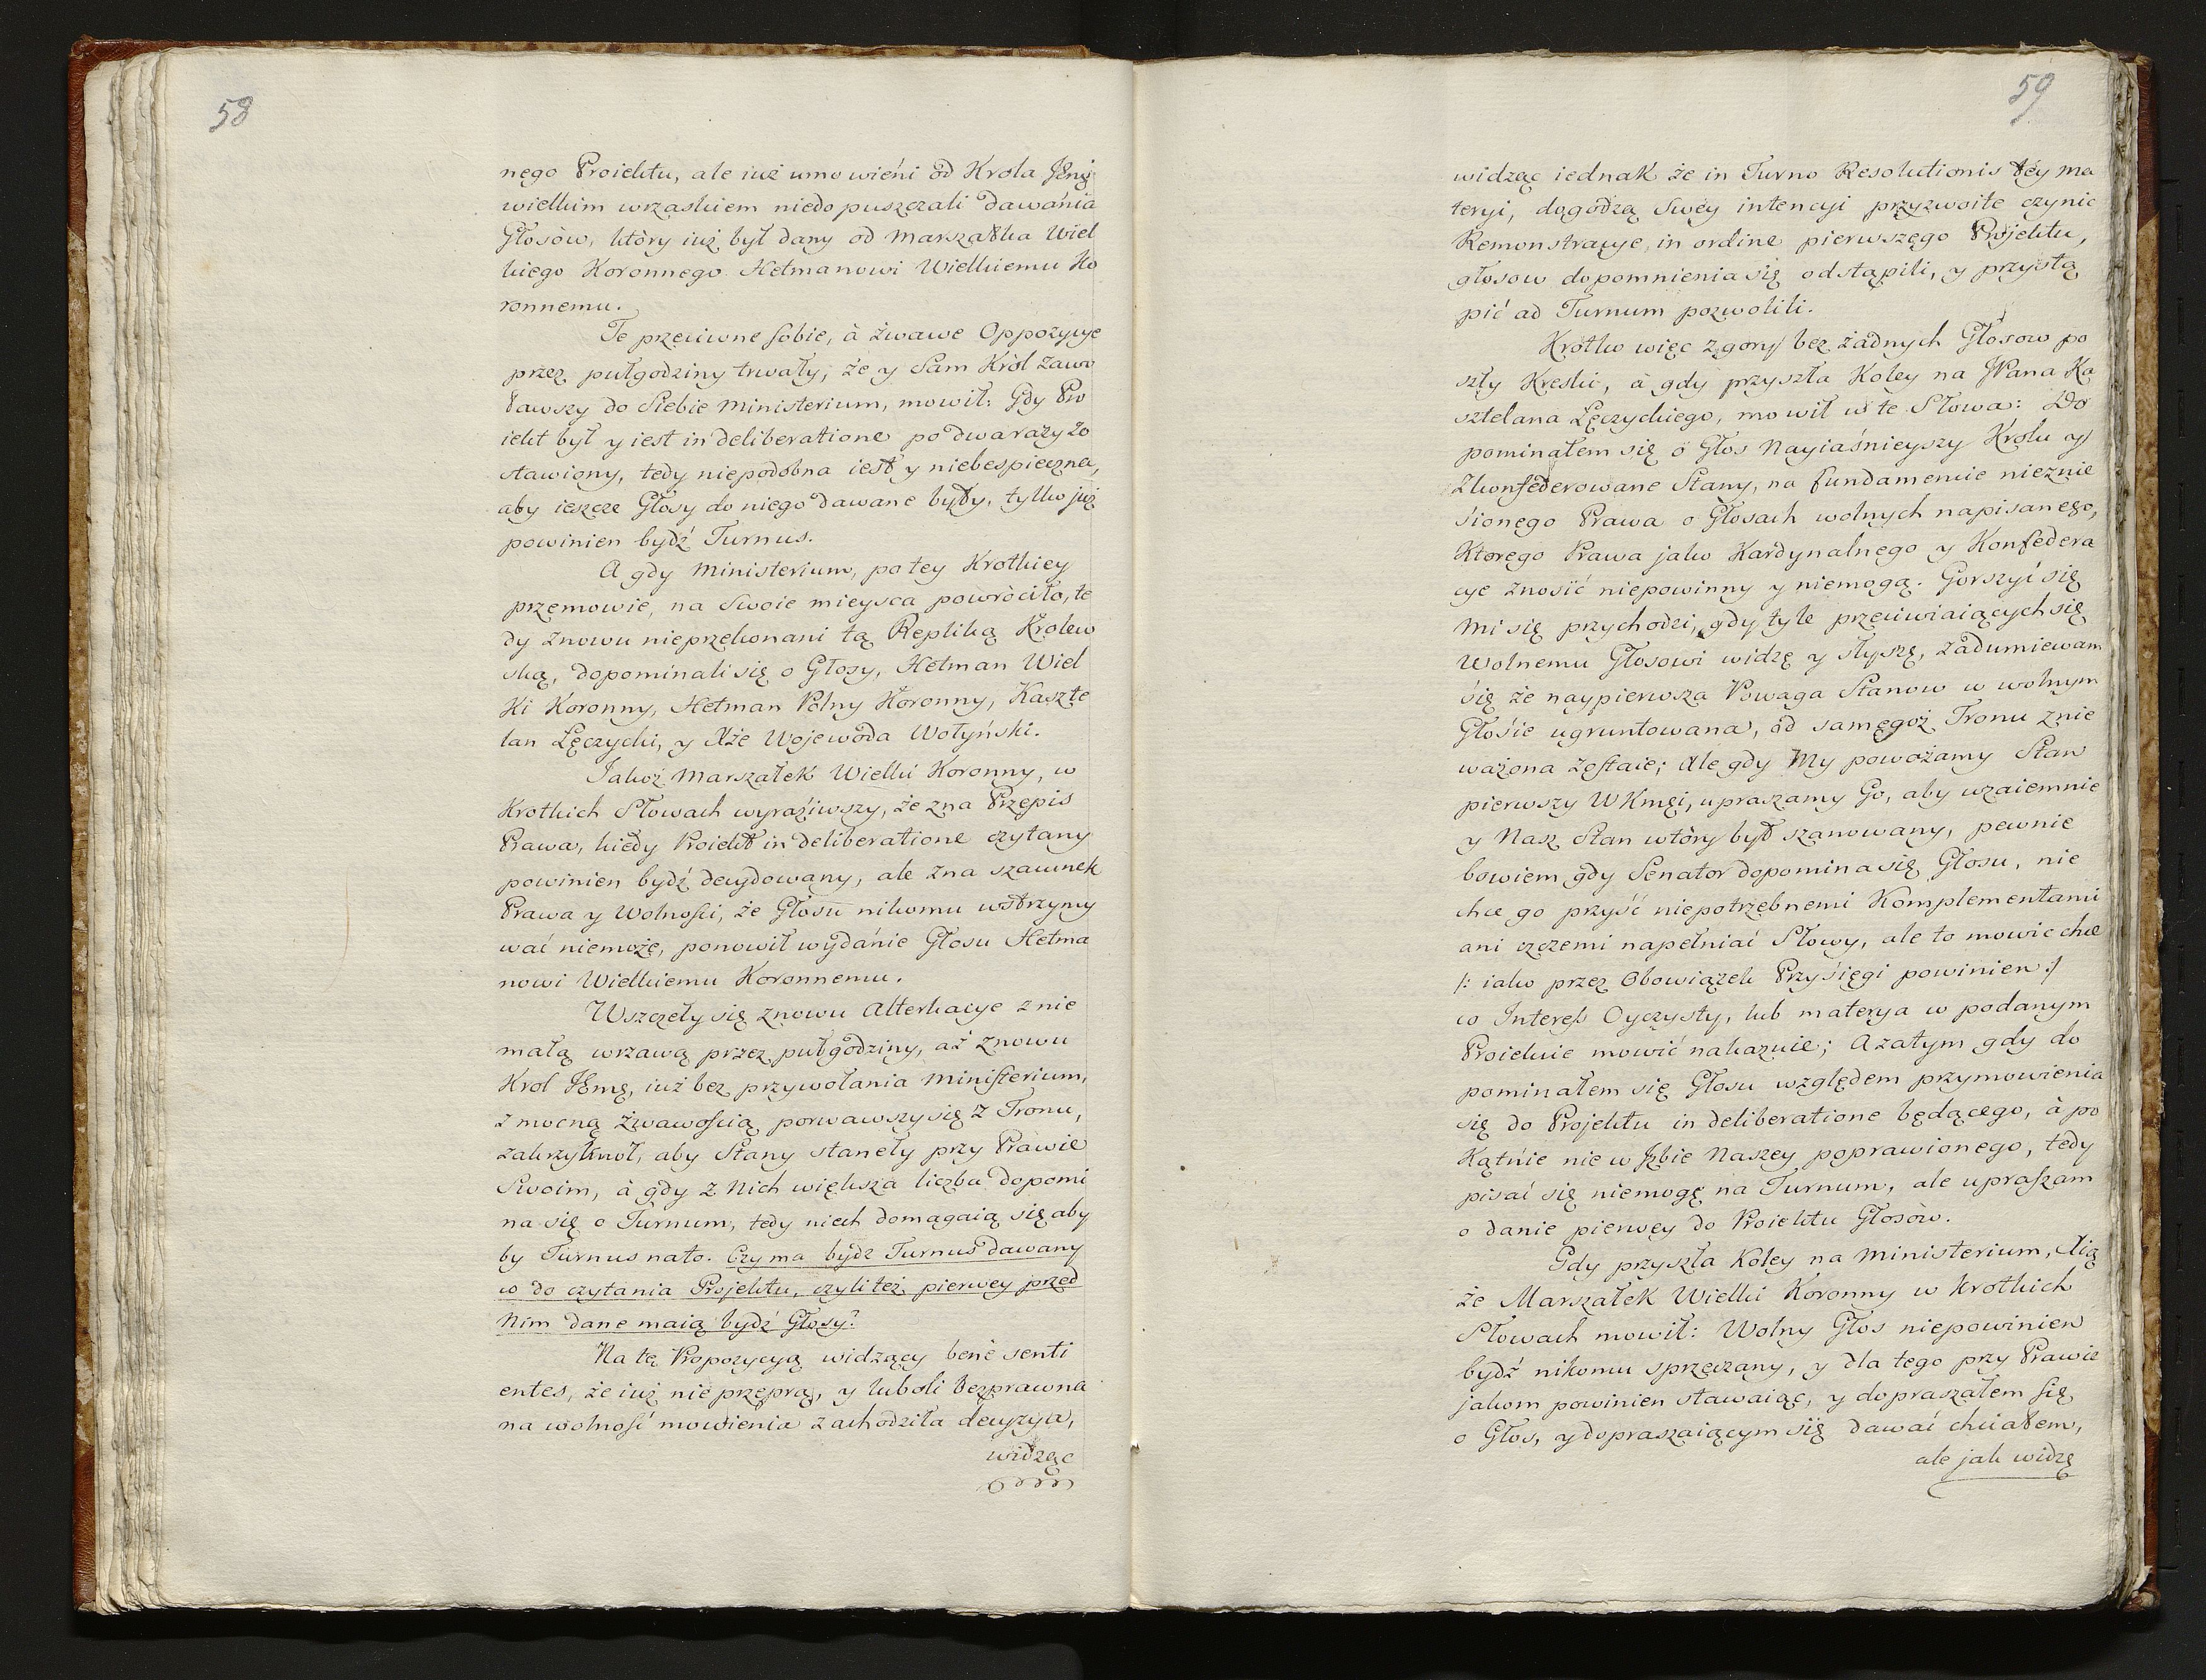 58
nego Proiektu, ale iuż umowieni od Krola JEmę
wielkim wrzaskiem niedopuszczali dawania
Głosòw, ktòry iuż był dany od Marszałka Wiel
kiego Koronnego Hetmanowi Wielkiemu Ko
ronnemu.
Te przeciwne sobie, à żwawe Oppozycye
przez pułgodziny trwały, że y Sam Kròl zawo
ławszy do Siebie Ministerium, mowił: Gdy Pro
iekt był y iest in deliberatione po dwa razy zo
stawiony, tedy niepodobna iest y niebespieczna,
aby ieszcze Głosy do niego dawane były, tylko już
powinien bydź Turnus.
A gdy Ministerium, po tey Krotkiey
przemowie, na Swoie mieysca powròciło, te
dy znowu nieprzekonani tą Repliką Krolew
ską, dopominali się o Głosy, Hetman Wiel
Ki Koronny, Hetman Polny Koronny, Kaszte
lan Łęczycki, y Xże Wojewoda Wołyński.
Jakoż Marszałek Wielki Koronny, w
Krotkich Słowach wyraziwszy, że zna Przepis
Prawa, kiedy Proiekt in deliberatione czytany
powinien bydź decydowany, ale zna szacunek
Prawa y Wolności, że Głosu nikomu wstrzymy
wać niemoże, ponowił wydanie Głosu Hetma
nowi Wielkiemu Koronnemu.
Wszczęły się znowu Alterkacye z nie
małą wrzawą przez pułgodziny, aż znowu
Krol JEmę, iuż bez przywołania Ministerium,
z mocną żwawością porwawszy się z Tronu,
zakrzyknoł, aby Stany staneły przy Prawie
Swoim, à gdy z Nich większa liczba dopomi
na się o Turnum, tedy niech domagaią się aby
by Turnus nato. Czy ma bydź Turnus dawany
co do czytania Projektu, czyli też pierwey przed
Nim dane maią bydź Głosy?
Na tę Propozycyą widzący benè senti
entes, że iuż nie przeprą, y luboli bezprawna
na wolność mowienia zachodziła decyzya,
widząc
59
widząc iednak że in Turno Resolutionis téy ma
teryi, dogodzą Swey intencyi przyzwoite czynic
Remonstracye, in ordine pierwszego Projektu,
głosow dopomnienia się odstąpili, y przystą
pić ad Turnum pozwolili.
Krotko więc z gory bez żadnych Głosow po
szły Kreski, à gdy przyszła Koley na JPana Ka
sztelana Łęczyckiego, mowił w te Słowa: Do
pominałem się o Głos Nayiaśnieyszy Krolu y
Zkonfederowane Stany, na fundamencie nieznie
sionego Prawa o Głosach wolnych napisanego,
Ktorego Prawa jako Kardynalnego y Konfedera
cye znosić niepowinny y niemogą. Gorszyć się
mi się przychodzi, gdy tyle przeciwiaiących się
Wolnemu Głosowi widzę y słyszę, zadumiewam
się że naypierwsza Powaga Stanow w wolnym
Głosie ugruntowana, od samegoż Tronu znie
ważona zostaie; Ale gdy My poważamy Stan
pierwszy WKmęi, upraszamy Go, aby wzaiemnie
y Nasz Stan wtòry był szanowany, pewnie
bowiem gdy Senator dopomina się Głosu, nie
chce go przyść niepotrzebnemi Komplementami
ani czczemi napełniać Słowy, ale to mowic chce
/: iako przez Obowiązek Przysięgi powinien :/
co Interess Oyczysty, lub materya w podanym
Proiekcie mowić nakazuie; A zatym gdy do
pominałem się Głosu względem przymowienia
się do Projektu in deliberatione będącego, à po
Kątnie nie w Jzbie Naszey poprawionego, tedy
pisać się niemogę na Turnum, ale upraszam
o danie pierwey do Proiektu Głosòw.
Gdy przyszła Koley na Ministerium, Xią
że Marszałek Wielki Koronny w Krotkich
Słowach mowił: Wolny Głos niepowinien
bydź nikomu sprzeczany, y dla tego przy Prawie
jakom powinien stawaiąc, y dopraszałem się
o Głos, y dopraszaiącym się dawać chciałem,
ale jak widzę